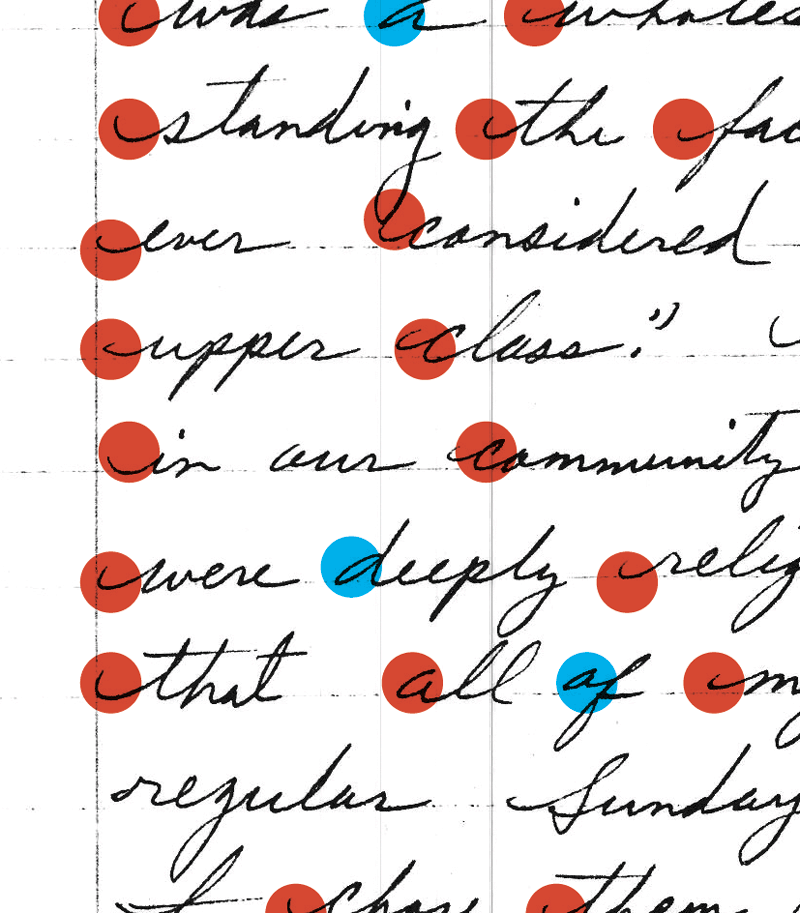 was a wholes
standing the fac
ever considered
upper class."
in our community
were deeply relig
that all of my
regular Sunday
I chose them